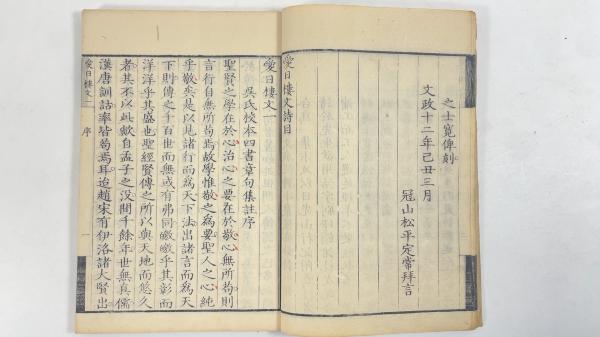 之士寬俾刻
文政十二年己丑三月
冠山松平定常拜言
愛日樓文詩目
愛日樓文一
吳氏校本四書章句集註序
聖賢之學在於心治心之要在於敬心無所苟則
言行自無所苟焉故學惟敬之為要聖人之心純
乎敬矣是以見諸行而為天下法出諸言而為天
下則傳之千百世而無或有弗同巍巍乎其彰而
洋洋乎其盛也聖經賢傳之所以與天地而悠久
者其不以此歟自孟子之没閒千餘年世無真儒
漢唐訓詁率皆苟焉耳迨趙宋有伊洛諸大賢出
愛日樓文一
序
一